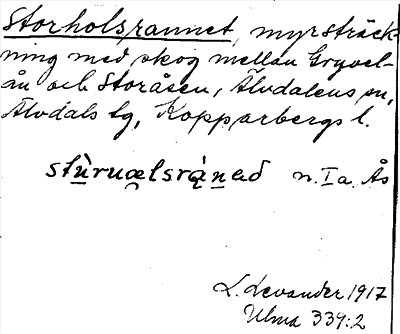 Storholsrannet, myrsträck-
ning med skog mellan Gryvel-
ån och Storåsen, Älvdalens sn,
Älvdals tg, Kopparbergs l.
stùruœlsrą̀nəd n. Ia. Ås
L. Levander 1917
Ulma 339:2